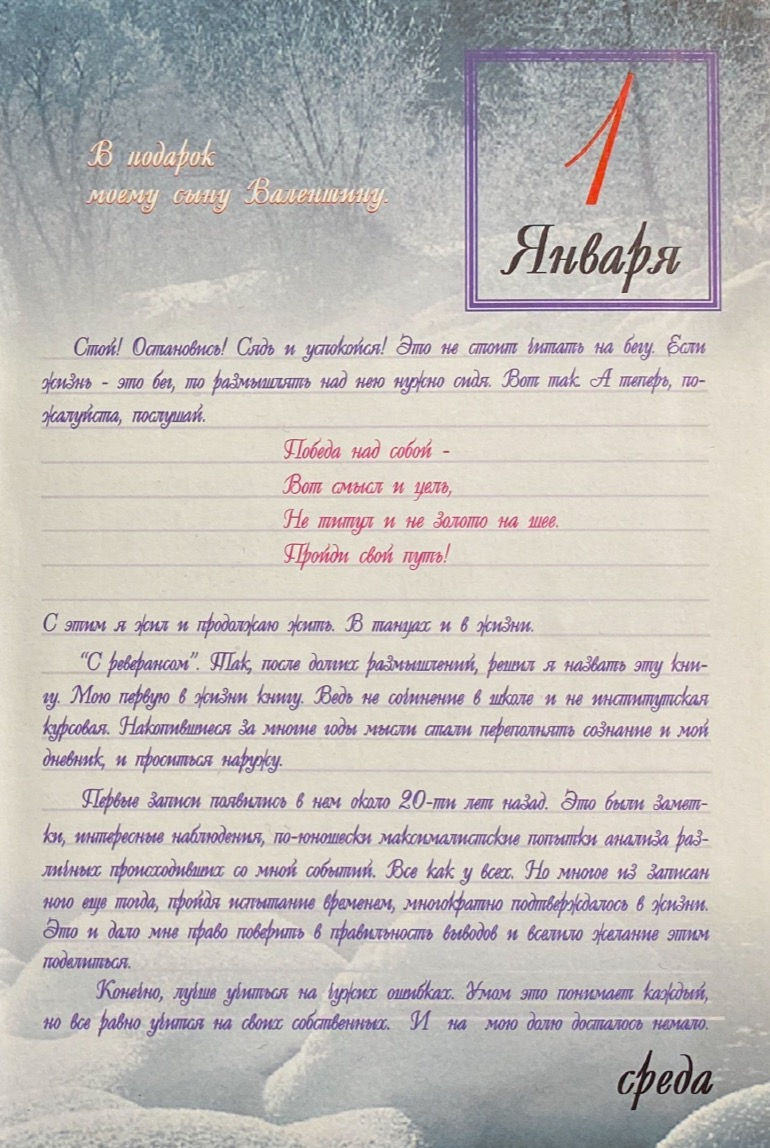 В подарок
моему сыну Валентину.
1
Января
Стой! Остановись! Сядь и успокойся! Это не стоит читать на бегу. Если
жизнь - это бег, то размышлять над нею нужно сидя. Вот так. А теперь, по-
жалуйста, послушай.
Победа над собой -
Вот смысл и цель,
Не титул и не золото на шее.
Пройди свой путь!
С этим я жил и продолжаю жить. В танцах и в жизни.
"С реверансом". Так, после долгих размышлений, решил я назвать эту кни-
гу. Мою первую в жизни книгу. Ведь не сочинение в школе и не институтская
курсовая. Накопившиеся за многие годы мысли стали переполнять сознание и мой
дневник, и проситься наружу.
Первые записи появились в нем около 20-ти лет назад. Это были замет-
ки, интересные наблюдения, по-юношески максималистские попытки анализа раз-
личных происходивших со мной событий. Все как у всех. Но многое из записан
ного еще тогда, пройдя испытание временем, многократно подтверждалось в жизни.
Это и дало мне право поверить в правильность выводов и вселило желание этим
поделиться.
Конечно, лучше учиться на чужих ошибках. Умом это понимает каждый,
но все равно учится на своих собственных. И на мою долю досталось немало.
среда